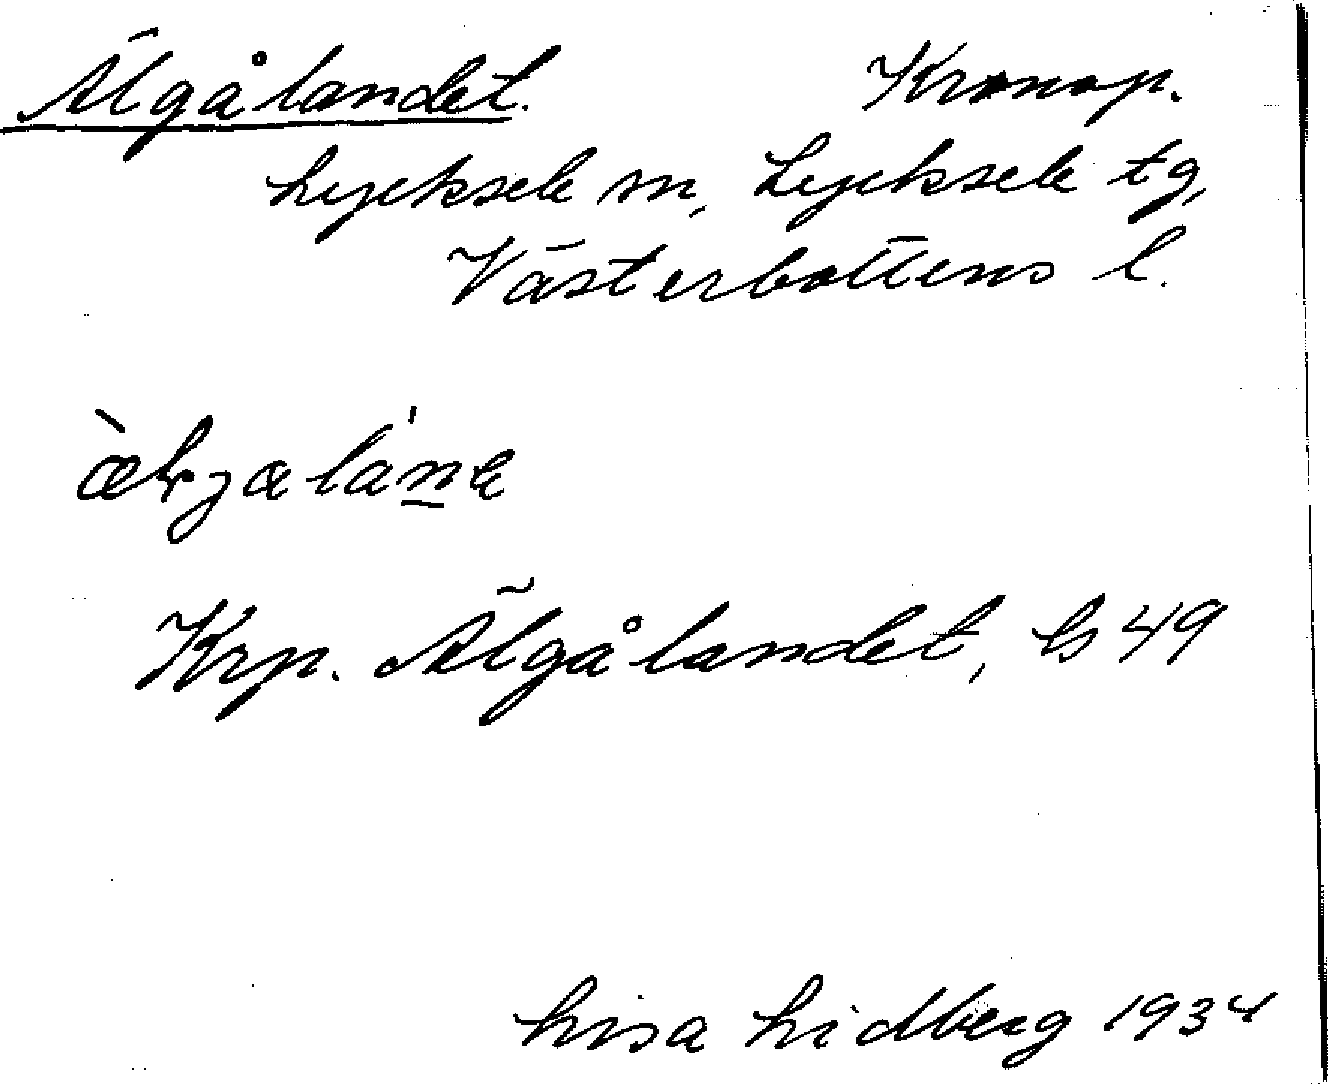 Älgålandet. Kronop.
Lycksele sn, Lycksele tg,
Västerbottens l.
Krp. Älgålandet, b 49
Lisa Lidberg 1934